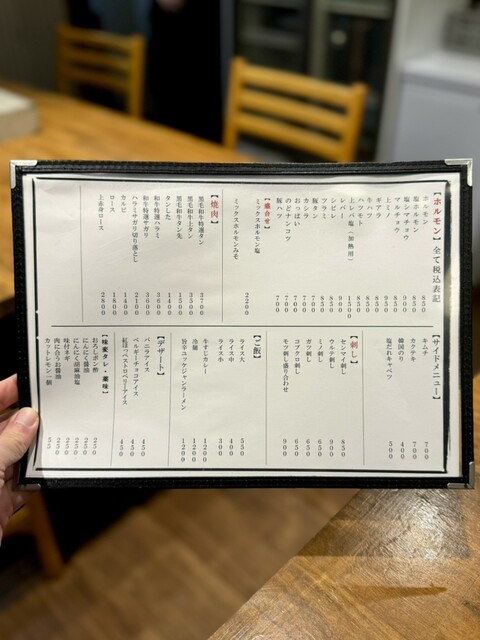 【ホルモン】全て税込表記
ホルモン 850
塩ホルモン 850
塩シマチョウ 900
マルチョウ
上ミノ
ギアラ 850
牛ハツ 850
ハツモト 850
上レバ塩（加熱用） 1500
レバー
シビレ
ツラミ 850
豚タン 700
カシラ 700
おっぱい 700
のどナンコツ 700
豚ハツ 700
【盛合せ】
ミックスホルモン塩
ミックスホルモンみそ 2200
【焼肉】
黒毛和牛特選タン 3700
黒毛和牛上タン 3500
黒毛和牛タン先 1500
タンした 1400
和牛特選ハラミ 3600
和牛特選サガリ 3600
ハラミサガリ切り落とし 2100
カルビ 1400
ロース 1800
上赤身ロース 2800
【サイドメニュー】
キムチ 700
カクテキ 700
韓国のり 400
塩だれキャベツ 500
【刺し】
センマイ刺し 850
ウルテ刺し 900
ミノ刺し 650
ガツ刺し 650
コブクロ刺し 650
モツ刺し盛り合わせ 900
【ご飯】
ライス大 550
ライス中 400
ライス小 300
牛すじカレー 1200
冷麺 1200
旨辛ユッケジャンラーメン 1200
【デザート】
バニラアイス 450
ベルギーチョコアイス 450
紅ほっぺストロベリーアイス 450
【味変タレ・薬味】
おろしポン酢 250
にんにく醤油 250
にんにく胡麻油塩 250
味付ネギ 250
肉に合うお醤油 250
カットレモン一個 55